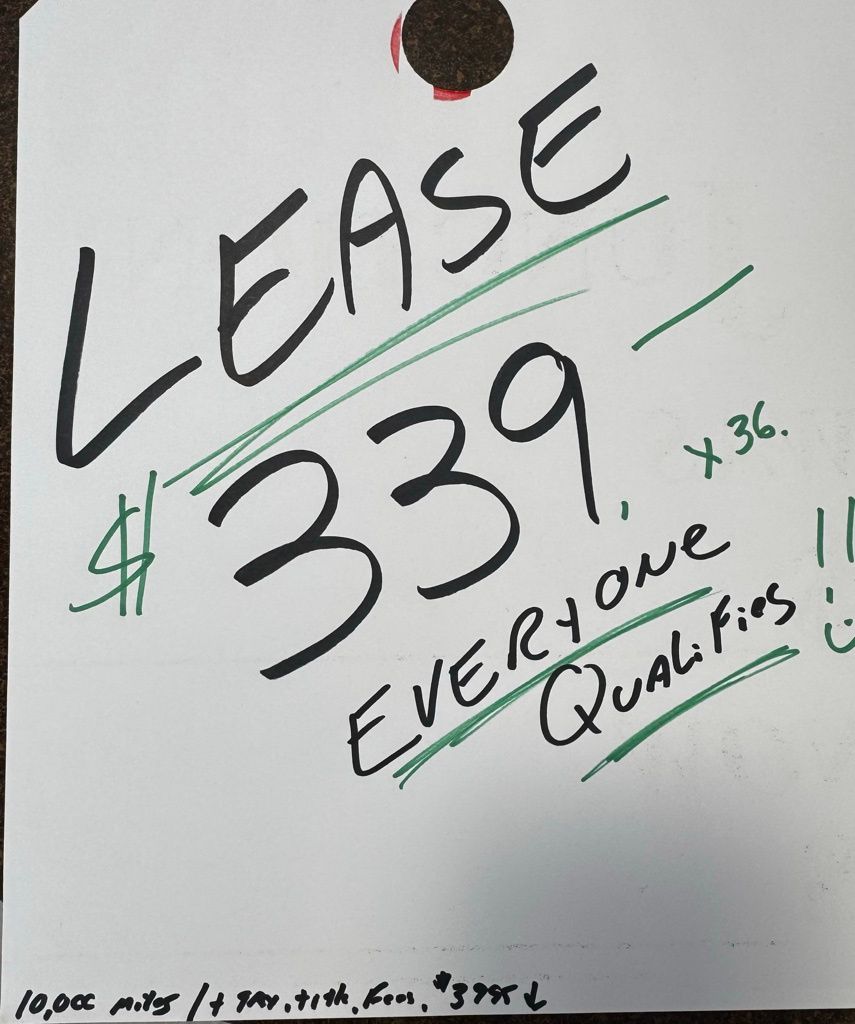 LEASE
$339.
x 36.
EVERYONE
QUALiFies !!
10,000 miles / + TAX, title, Fees, $3995 ↓